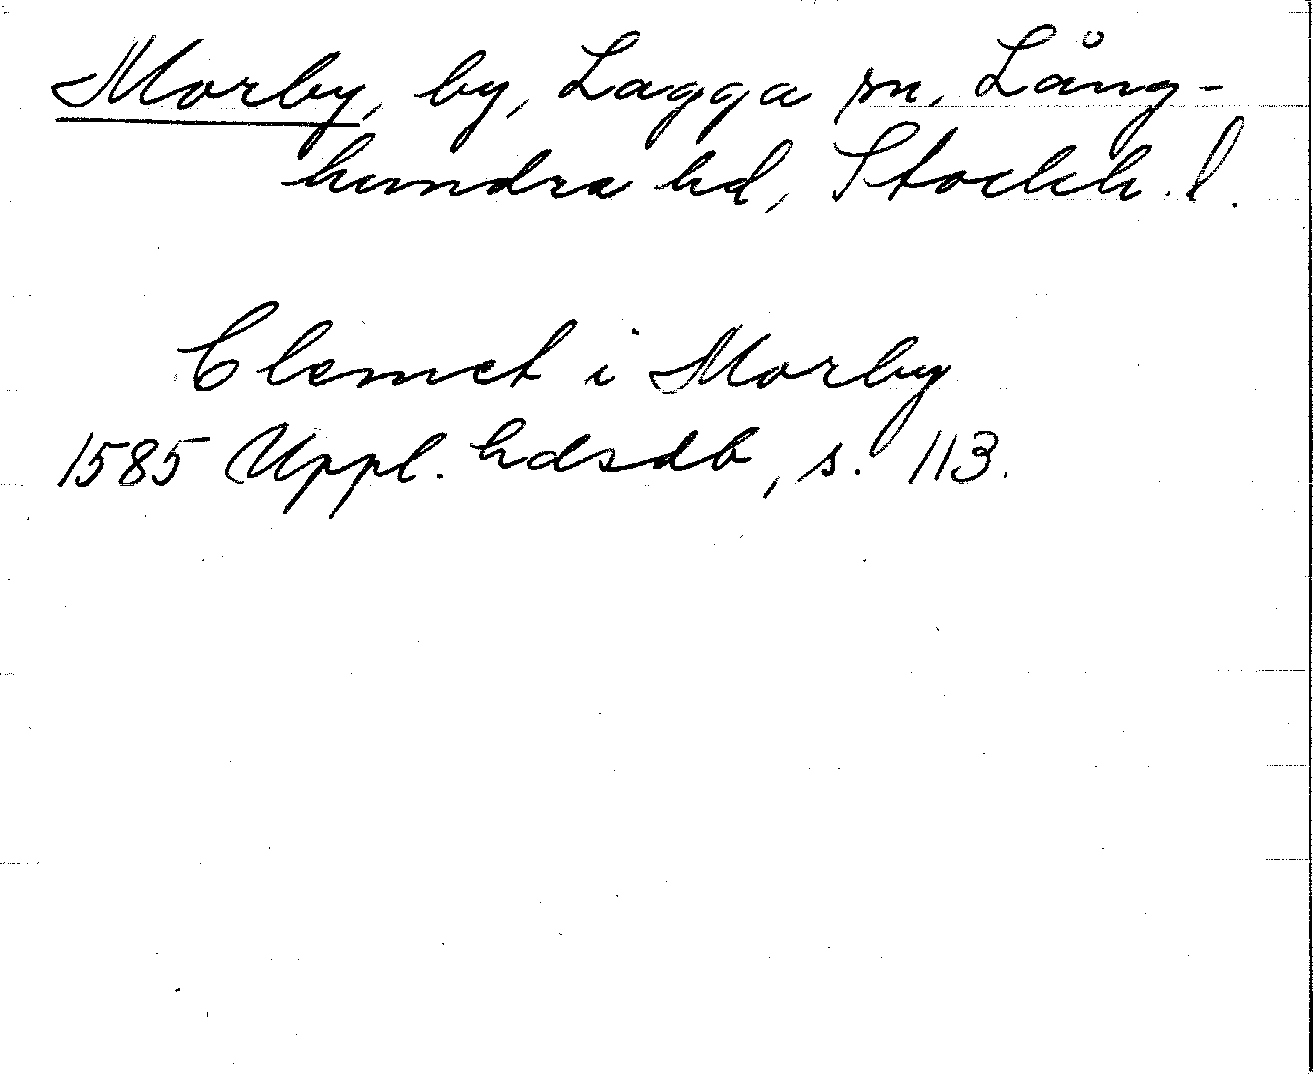 Morby, by, Lagga sn, Lång-
hundra hd, Stockh. l.
Clemet i Morby
1585 Uppl. hdsdb, s. 113.